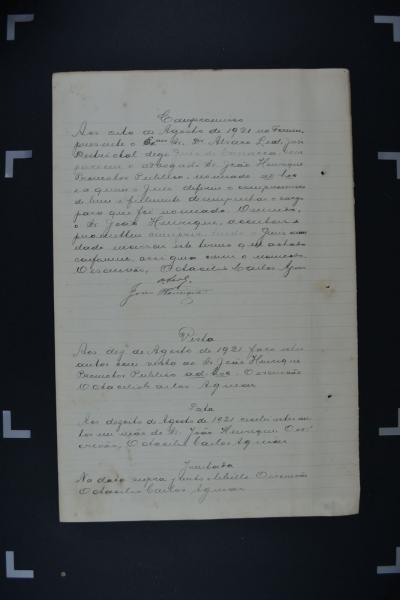 Compromisso
Aos oito de Agosto de 1921 no Forum,
presente o Exmo Sr. Dr. Alvaro Leal, Juiz
o advogado Dr. João Henrique
Promotor Publico, nomeado ad hoc
e a quem o Juiz deferiu o compromisso
de bem e fielmente desempenhar o cargo
para que foi nomeado. O mesmo,
o Dr. João Henrique, acceitou e
prometteu cumprir tudo. O Juiz man
dado lavrar este termo que achado
conforme, assigna com o nomeado.
O escrivão, Octacilio Carlos Aguiar
João Henrique
Vista
Aos dez de Agosto de 1921 faço estes
autos com vista ao Dr. João Henrique
Promotor Publico ad-hoc. O escrivão
Octacilio Carlos Aguiar
Data
Aos dezoito de Agosto de 1921 recebi estes au
tos em mão do Dr. João Henrique. O es
crivão, Octacilio Carlos Aguiar
Juntada
Na data supra junto O escrivão
Octacilio Carlos Aguiar